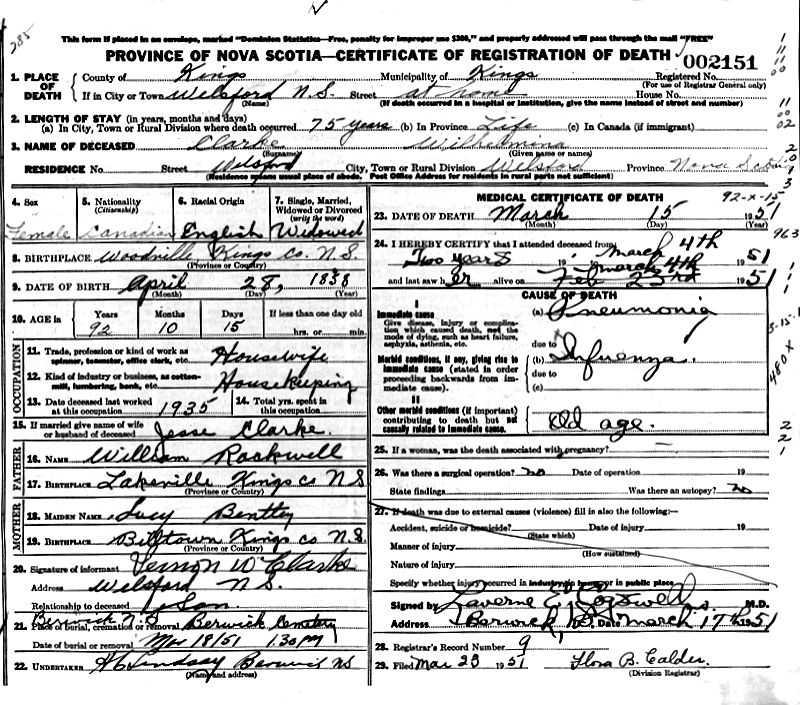 285
This form if placed in an envelope, marked "Dominion Statistics—Free, penalty for improper use $300," and properly addressed will pass through the mail "FREE"
PROVINCE OF NOVA SCOTIA—CERTIFICATE OF REGISTRATION OF DEATH
002151
1. PLACE OF DEATH
County of Kings Municipality of Kings Registered No.
(For use of Registrar General only)
If in City or Town Welsford N.S. Street at home House No.
(Name) (If death occurred in a hospital or institution, give the name instead of street and number)
2. LENGTH OF STAY (in years, months and days)
(a) In City, Town or Rural Division where death occurred 75 years (b) In Province Life (c) In Canada (if immigrant)
3. NAME OF DECEASED Clarke Wilhelmina
(Surname) (Given name or names)
RESIDENCE No. Street Welsford City, Town or Rural Division Welsford Province Nova Scotia
(Residence means usual place of abode. Post Office Address for residents in rural parts not sufficient)
4. Sex
Female
5. Nationality (Citizenship)
Canadian
6. Racial Origin
English
7. Single, Married, Widowed or Divorced (write the word)
Widowed
8. BIRTHPLACE Woodville, Kings Co. N.S.
(Province or Country)
9. DATE OF BIRTH April 28, 1858
(Month) (Day) (Year)
10. AGE in Years Months Days If less than one day old
92 10 15 hrs. or min.
OCCUPATION
11. Trade, profession or kind of work as spinner, teamster, office clerk, etc. Housewife
12. Kind of industry or business, as cotton-mill, lumbering, bank, etc. Housekeeping
13. Date deceased last worked at this occupation 1935
14. Total yrs. spent in this occupation
15. If married give name of wife or husband of deceased Jesse Clarke.
FATHER
16. NAME William Rockwell
17. BIRTHPLACE Lakeville Kings co N.S
(Province or Country)
MOTHER
18. MAIDEN NAME Lucy Bentley
19. BIRTHPLACE Billtown Kings co N.S.
(Province or Country)
20. Signature of informant Vernon W Clarke
Address Welsford N.S.
Relationship to deceased Son
Berwick N.S Berwick Cemetery
21. Place of burial, cremation or removal
Date of burial or removal Mar 18/51 1.30 pm
22. UNDERTAKER Lindsay Berwick NS
(Name and address)
MEDICAL CERTIFICATE OF DEATH
92-X-15
23. DATE OF DEATH March 15 1951
(Month) (Day) (Year)
963
24. I HEREBY CERTIFY that I attended deceased from
Two years 19 March 4th 1951
March 4th
and last saw her alive on Feb 23rd 1951
CAUSE OF DEATH
I
Immediate cause
Give disease, injury or complication which caused death, not the mode of dying, such as heart failure, asphyxia, asthenia, etc.
(a) Pneumonia
due to
Morbid conditions, if any, giving rise to immediate cause (stated in order proceeding backwards from immediate cause).
(b) Influenza.
due to
(c)
II
Other morbid conditions (if important) contributing to death but not causally related to immediate cause.
Old age.
480 X
25. If a woman, was the death associated with pregnancy?
26. Was there a surgical operation? no Date of operation 19
State findings Was there an autopsy? no
27. If death was due to external causes (violence) fill in also the following:—
Accident, suicide or homicide? Date of injury 19
(State which)
Manner of injury
(How sustained)
Nature of injury
Specify whether injury occurred in industry, in home or in public place
Signed by Laverne E. Cogswell M.D.
Address Berwick N.S. Date March 17th 1951
28. Registrar's Record Number 9
29. Filed Mar 23 1951 Flora B. Calder.
(Division Registrar)